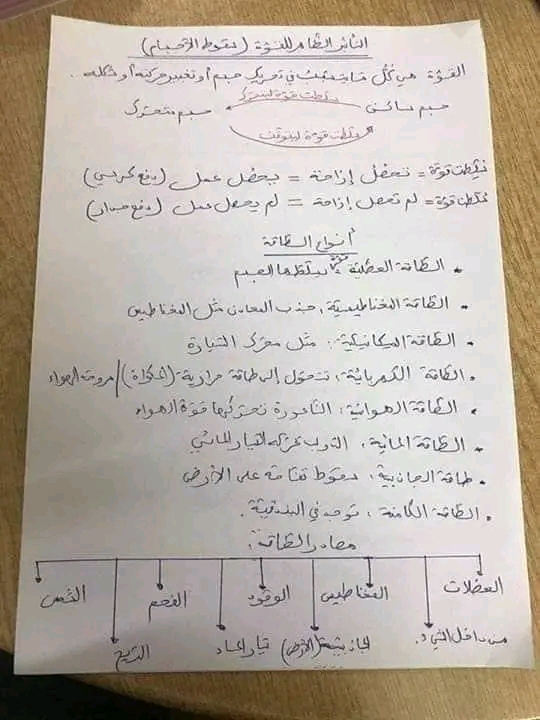 التأثير الظاهر للقوة (سقوط الأجسام)
القوة هي كل ما يتسبب في تحريك جسم أو تغيير حركته أو شكله.
سلطت قوة ليتحرك
جسم ساكن جسم متحرك
سلطت قوة ليتوقف
سلطت قوة = تحصل إزاحة = يحصل عمل (دفع كرسي)
سلطت قوة = لم تحصل إزاحة = لم يحصل عمل (دفع جدار)
أنواع الطاقة
• الطاقة العضلية: يسلطها الجسم
• الطاقة المغناطيسية: جذب المعادن مثل المغناطيس
• الطاقة الميكانيكية: مثل محرك السيارة
• الطاقة الكهربائية: تتحول إلى طاقة حرارية (المكواة)/مروحة الهواء
• الطاقة الهوائية: الناعورة تحركها قوة الهواء
• الطاقة المائية: الدولاب يحركه التيار المائي
• طاقة الجاذبية: سقوط تفاحة على الأرض
• الطاقة الكامنة: توجد في البندقية.
مصادر الطاقة:
العضلات المغناطيس الوقود الفحم الشمس
من داخل الشيء. الجاذبية (الأرض) تيار الماء الريح